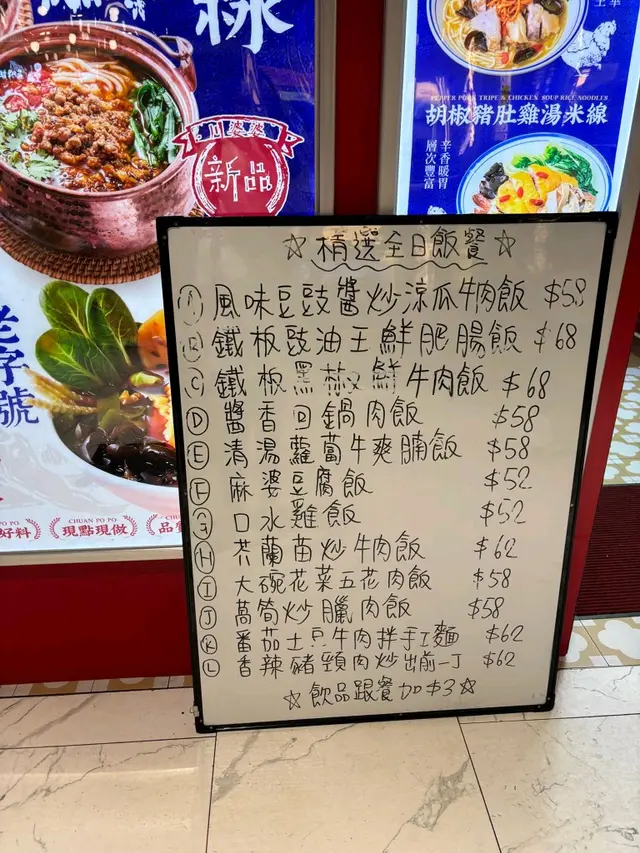 新品
老字號
CHUAN PO PO
CHUAN PO PO
好料
現點現做
PEPPER PORK TRIPE & CHICKEN SOUP RICE NOODLES
胡椒豬肚雞湯米線
辛香暖胃
層次豐富
☆精選全日飯餐☆
A 風味豆豉醬炒涼瓜牛肉飯 $58
B 鐵板豉油王鮮肥腸飯 $68
C 鐵板黑椒鮮牛肉飯 $68
D 醬香回鍋肉飯 $58
E 清湯蘿蔔牛爽腩飯 $58
F 麻婆豆腐飯 $52
G 口水雞飯 $52
H 芥蘭苗炒牛肉飯 $62
I 大碗花菜五花肉飯 $58
J 萵筍炒臘肉飯 $58
K 番茄土豆牛肉拌手工麵 $62
L 香辣豬頸肉炒出前一丁 $62
☆飲品跟餐加$3☆